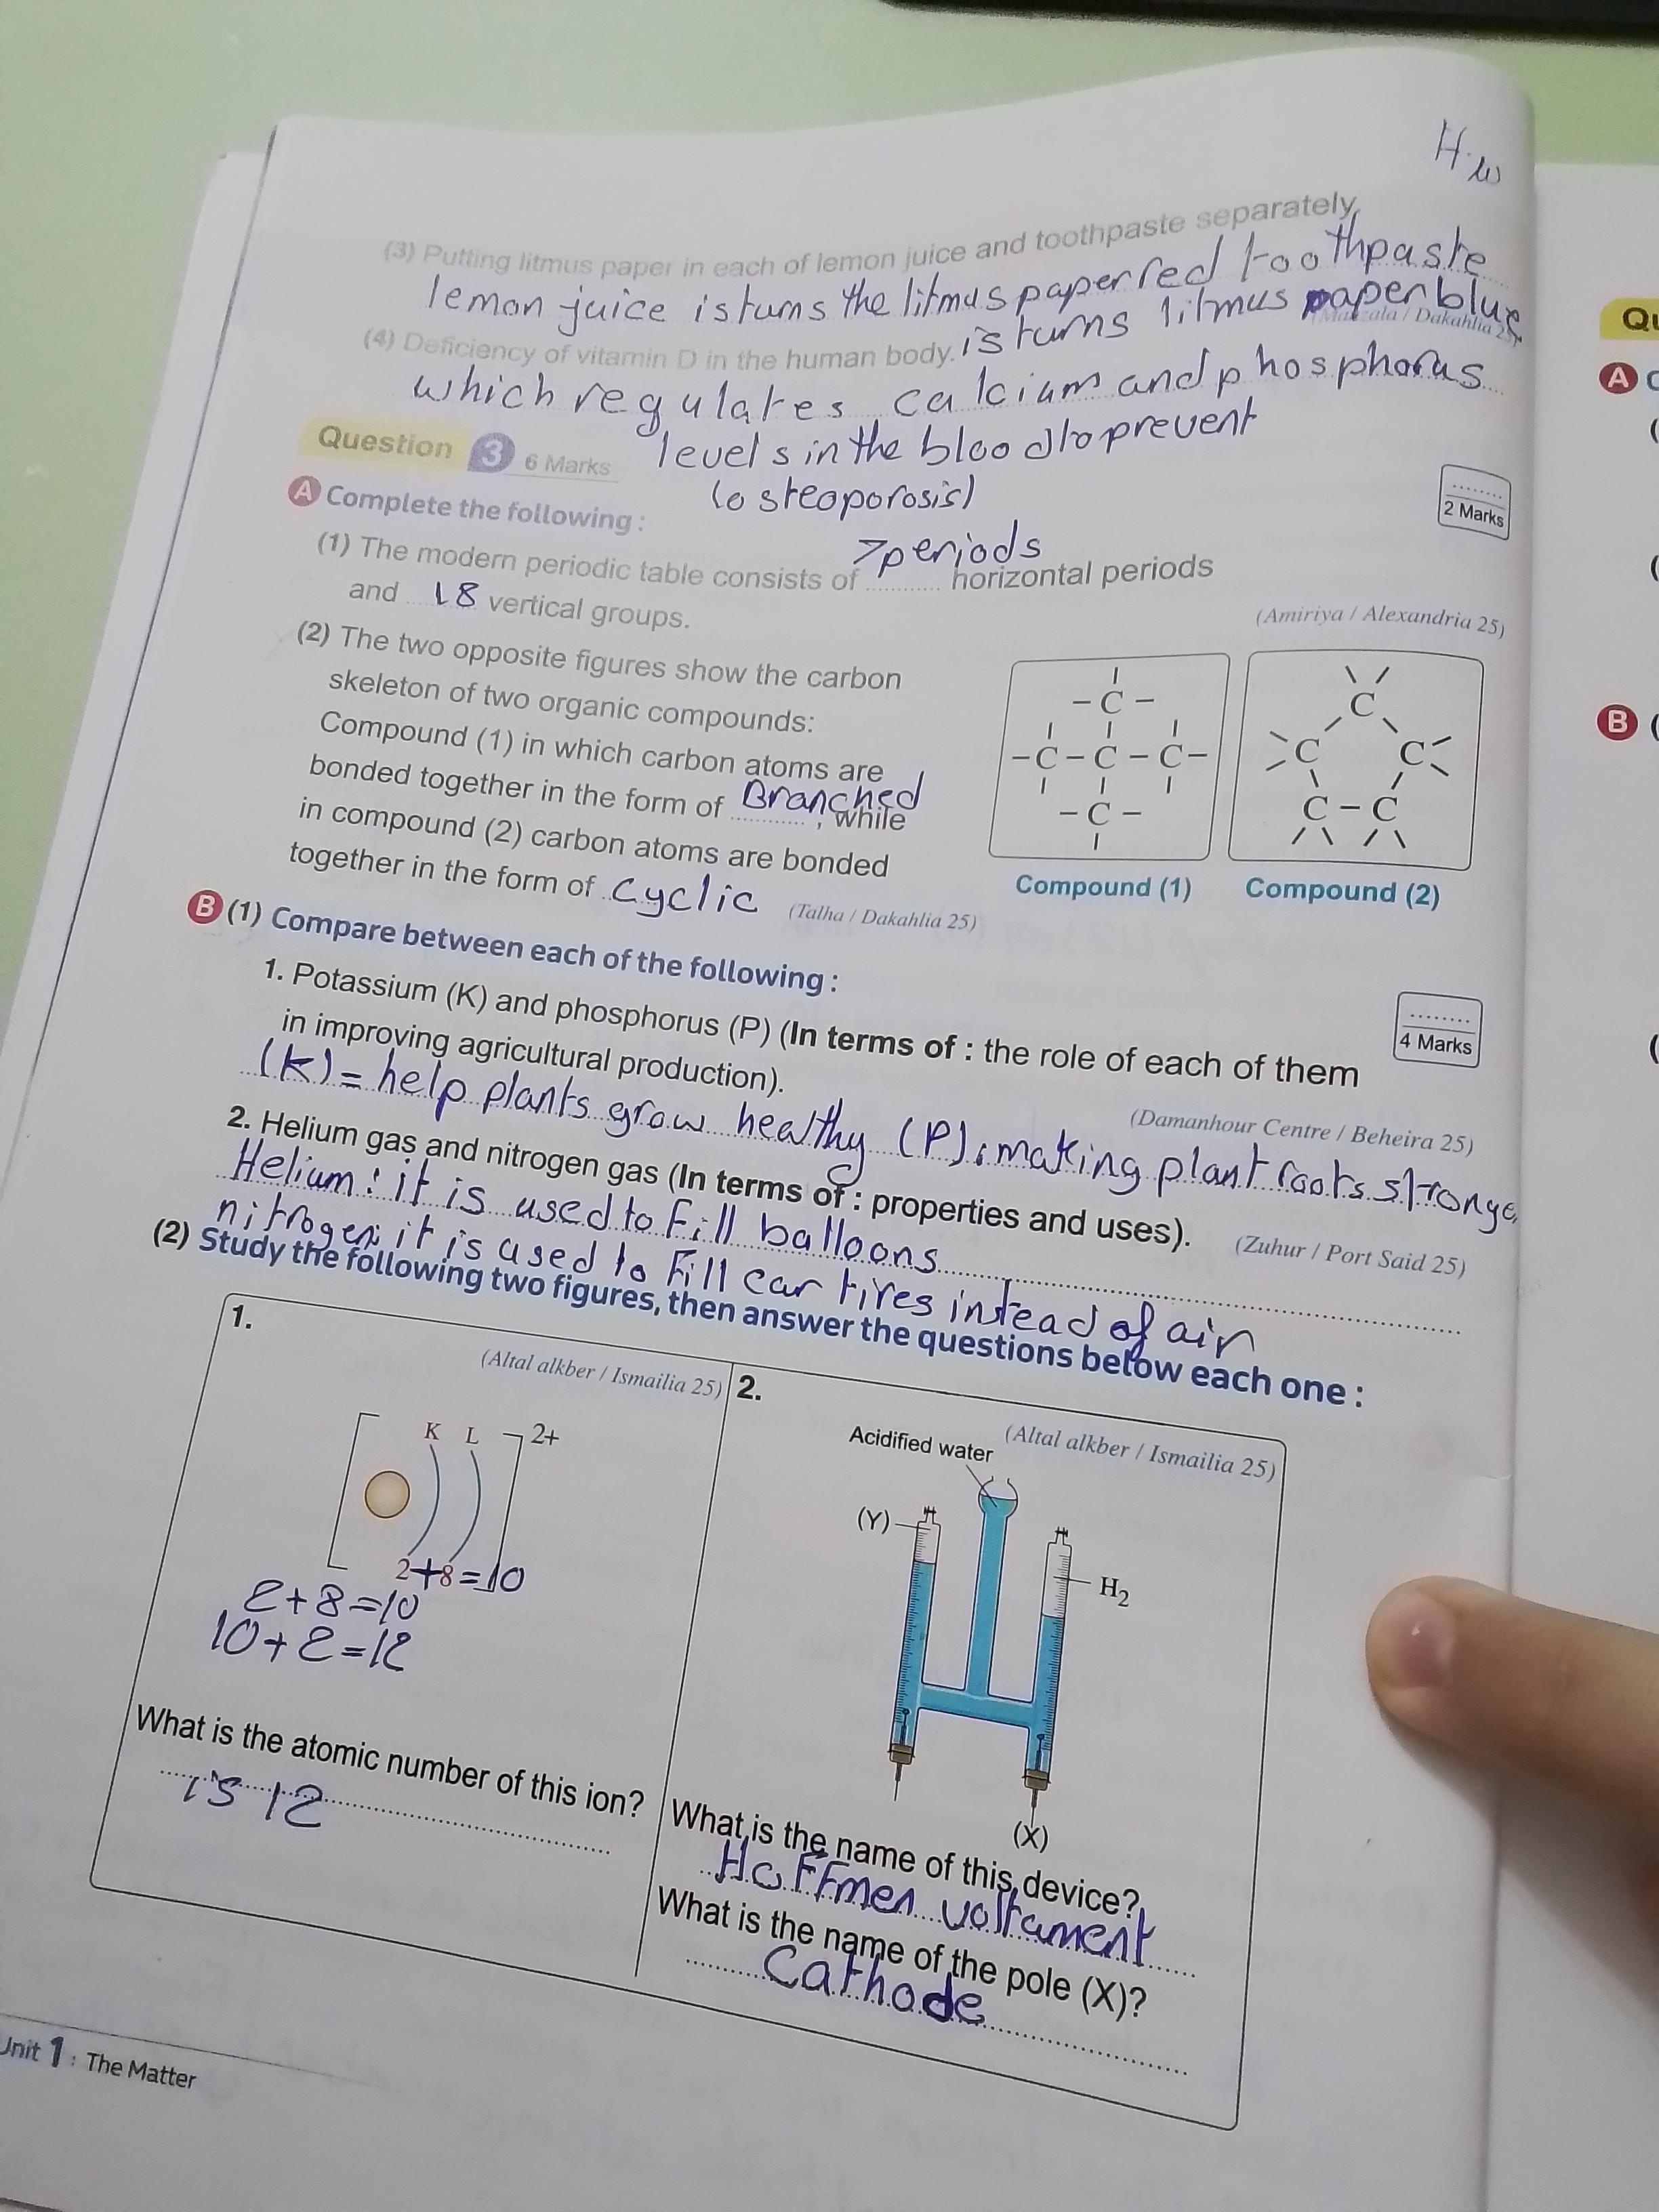 H.w
(3) Putting litmus paper in each of lemon juice and toothpaste separately.
lemon juice is turns the litmus paper red toothpaste
is turns litmus paper blue
Dakahlia 25)
(4) Deficiency of vitamin D in the human body.
which regulates calcium and phosphorus
levels in the blood to prevent
(osteoporosis)
Question 3 6 Marks
2 Marks
A Complete the following :
(1) The modern periodic table consists of 7periods horizontal periods
and 18 vertical groups.
(Amiriya / Alexandria 25)
(2) The two opposite figures show the carbon
skeleton of two organic compounds:
Compound (1) in which carbon atoms are
bonded together in the form of Branched, while
in compound (2) carbon atoms are bonded
together in the form of cyclic
(Talha / Dakahlia 25)
C
C C C
C
Compound (1)
C
C C
C C
Compound (2)
B (1) Compare between each of the following :
4 Marks
1. Potassium (K) and phosphorus (P) (In terms of : the role of each of them
in improving agricultural production).
(Damanhour Centre / Beheira 25)
(K) = help plants grow healthy (P): making plant roots stronge
2. Helium gas and nitrogen gas (In terms of : properties and uses).
(Zuhur / Port Said 25)
Helium: it is used to Fill balloons
nitrogen: it is used to Fill car tires instead of air
(2) Study the following two figures, then answer the questions below each one :
1.
(Altal alkber / Ismailia 25)
K L 2+
2+8=10
2+8=10
10+2=12
What is the atomic number of this ion?
is 12
2.
(Altal alkber / Ismailia 25)
Acidified water
(Y)
H2
(X)
What is the name of this device?
Hoffmen voltament
What is the name of the pole (X)?
Cathode
Unit 1 : The Matter
Qu
A C
(
(
B (
(